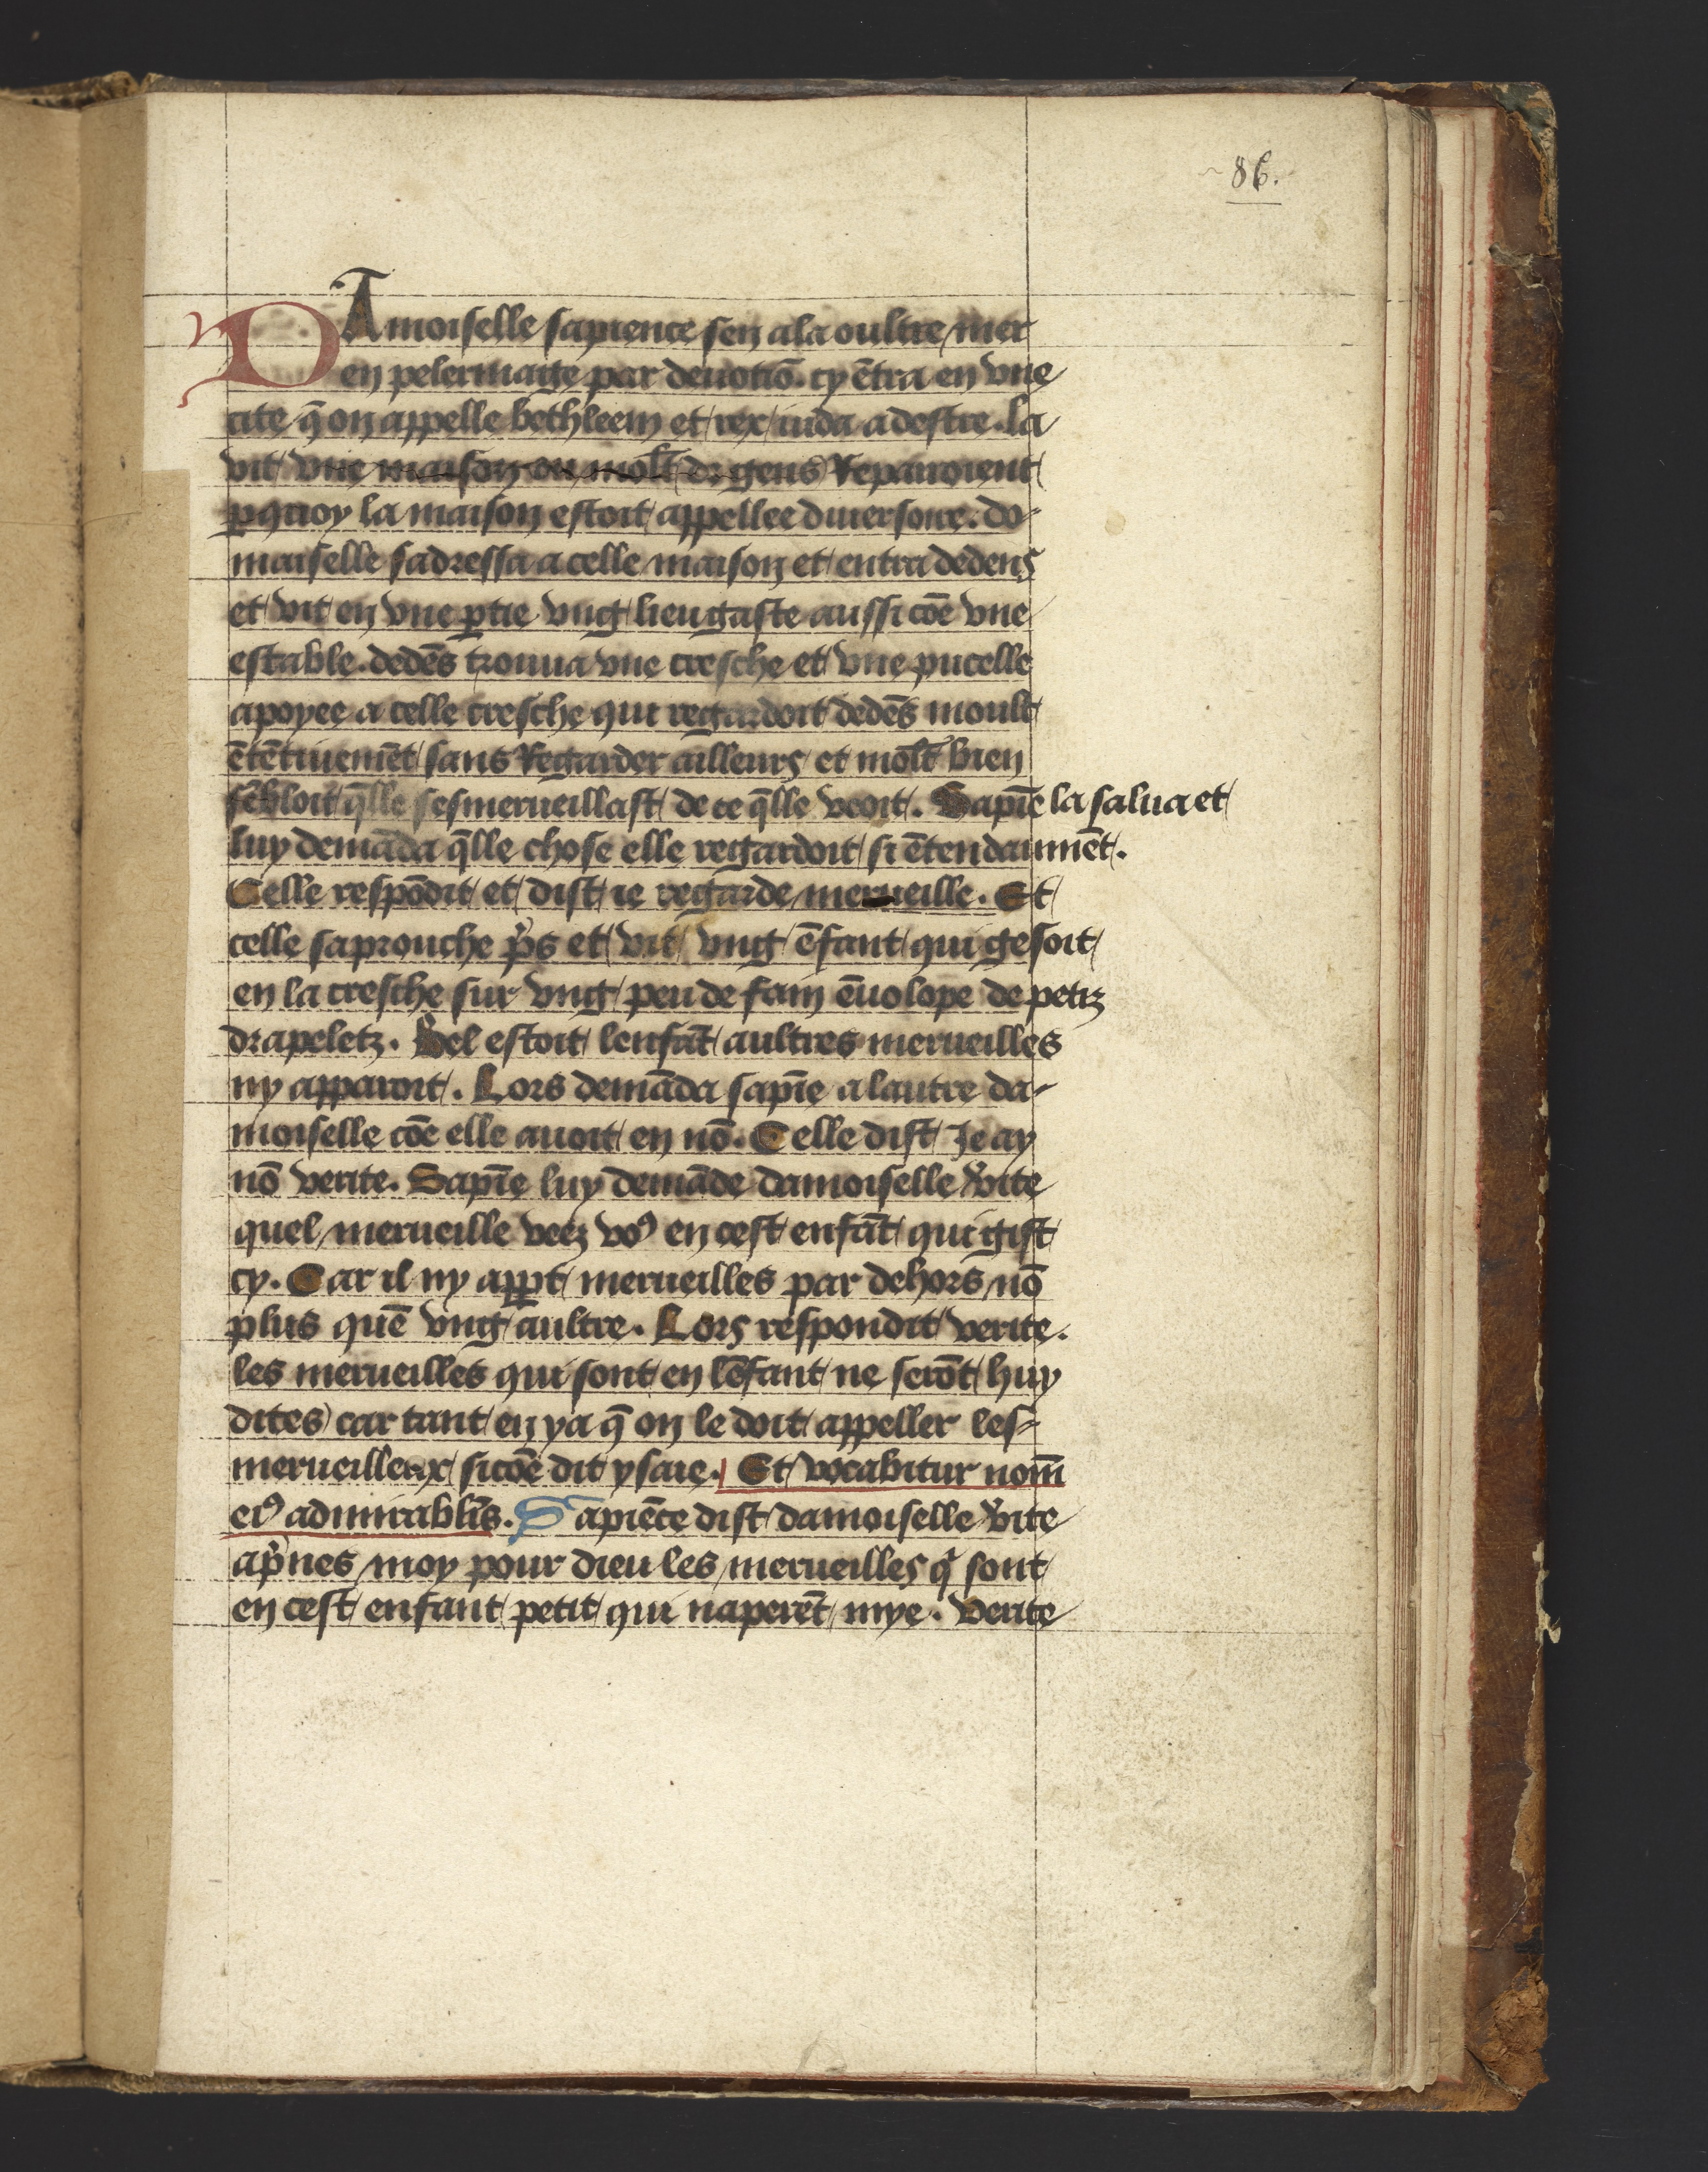 86.
DAmoiselle sapience sen ala oultre mer
en pelerinaige par deuotiō. cy ētra en vne
cite q̄ on appelle bethleem et rex iuda a destre. la
vit vne maison ou molt de gens Repairoient
ꝑquoy la maison estoit appellee diuersoire. do-
maiselle sadressa a celle maison et entra dedens
et vit en vne ꝑtie vng lieu gaste aussi cōe vne
estable. dedēs trouua vne cresche et vne pucelle
apoyee a celle cresche qui regardoit dedēs moult
ētētiuemēt sans Regarder ailleurs et molt bien
sēbloit q̄lle sesmerueillast de ce q̄lle veoit. Sapiē la salua et
luy demāda q̄lle chose elle regardoit si ētendaument.
Celle respōdit et dist ie regarde merueille. Et
celle saprouche p̄s et vit vng ēfant qui gesoit
en la cresche sur vng peu de fain ēuolope de petiz
drapeletz. Bel estoit lenfāt aultres merueilles
ny apparoit. Lors demāda sapiē a lautre da-
moiselle cōe elle auoit en nō. Celle dist Je ay
nō verite. Sapiē luy demāde damoiselle v̄ite
quel merueille veez voꝰ en cest enfāt qui gist
cy. Car il ny apꝑt merueilles par dehors nō
plus quē vng aultre. Lors respondit verite.
les merueilles qui sont en lēfant ne serōt huy
dites car tant en ya q̄ on le doit appeller les-
merueilleux sicōe dit ysaie. Et vocabitur nom̄
eiꝰ admirabl̄is. Sapiēce dist damoiselle v̄ite
ap̄nes moy pour dieu les merueilles q̇ sont
en cest enfant petit qui naperēt mye. Verite